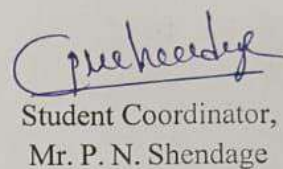 Student Coordinator,
Mr. P. N. Shendage